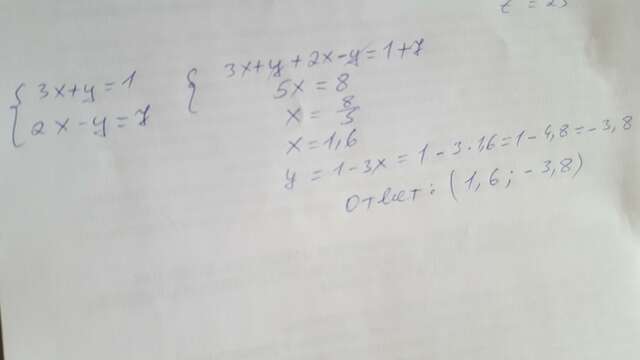 t = 25
3x+y=1
2x-y=7
3x+y+2x-y=1+7
5x=8
x=8/5
x=1,6
y=1-3x=1-3·1,6=1-4,8=-3,8
Ответ: (1,6; -3,8)